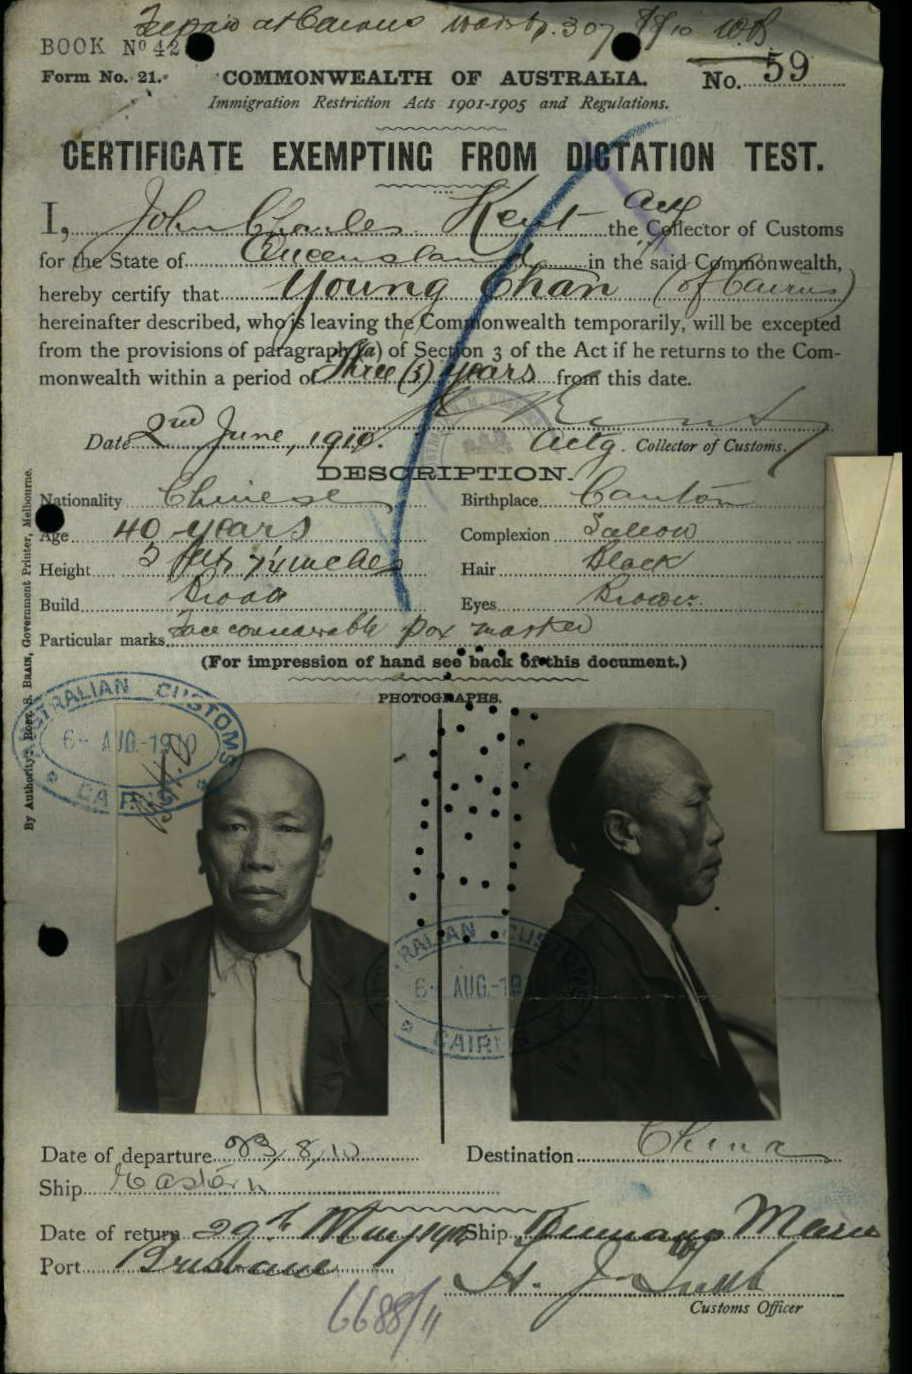 BOOK No 42
Form No. 21.
COMMONWEALTH OF AUSTRALIA.
No. 59
Immigration Restriction Acts 1901-1905 and Regulations.
CERTIFICATE EXEMPTING FROM DICTATION TEST.
I, John Charles Kent Actg the Collector of Customs
for the State of Queensland in the said Commonwealth,
hereby certify that Young Chan (of Cairns)
hereinafter described, who is leaving the Commonwealth temporarily, will be excepted
from the provisions of paragraph (a) of Section 3 of the Act if he returns to the Com-
monwealth within a period of Three (3) years from this date.
Date 2nd June, 1910. Actg. Collector of Customs.
DESCRIPTION.
Nationality Chinese Birthplace Canton
Age 40 years Complexion Sallow
Height 5 feet 7¼ inches Hair Black
Build Broad Eyes Brown
Particular marks Face considerable pox marked
(For impression of hand see back of this document.)
PHOTOGRAPHS.
By Authority: Robt. S. Brain, Government Printer, Melbourne.
AUSTRALIAN CUSTOMS
6 - AUG. - 1910
CAIRNS
AUSTRALIAN CUSTOMS
6 - AUG. - 19
CAIRNS
Date of departure 23/8/10 Destination China
Ship Eastern
Date of return 29th May 1912 Ship Kumano Maru
Port Brisbane
Customs Officer
6688/11